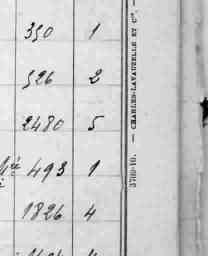 350 1
526 2
2480 5
493 1
1826 4
3789-10. — CHARLES-LAVAUZELLE ET Cie. —